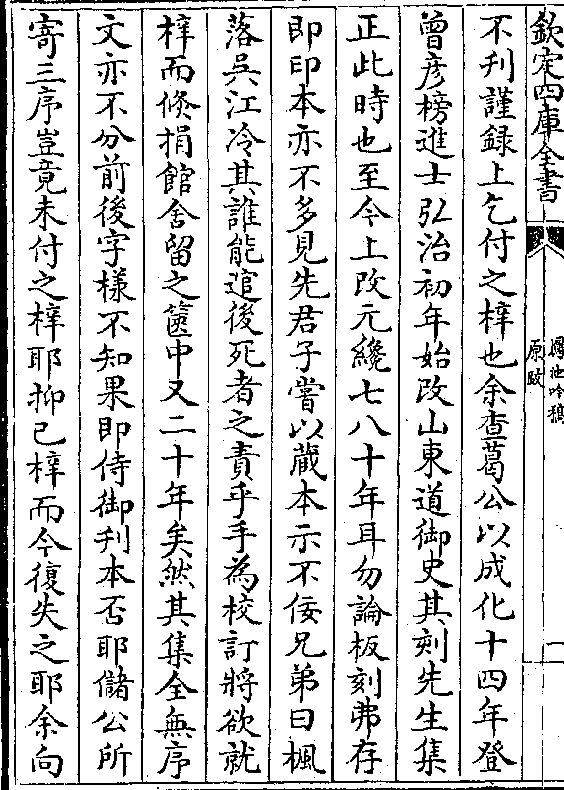 欽定四庫全書
鴈池吟稿
原跋
一
不刋謹録上乞付之梓也余查葛公以成化十四年登
曾彦榜進士弘治初年始改山東道御史其刻先生集
正此時也至今上改元纔七八十年耳勿論板刻弗存
即印本亦不多見先君子嘗以蔵本示不佞兄弟曰楓
落吳江冷其誰能逭後死者之責乎手為校訂將欲就
梓而倐捐館舍留之篋中又二十年矣然其集全無序
文亦不分前後字様不知果即侍御刋本否耶儲公所
寄三序豈竟未付之梓耶抑已梓而今復失之耶余向